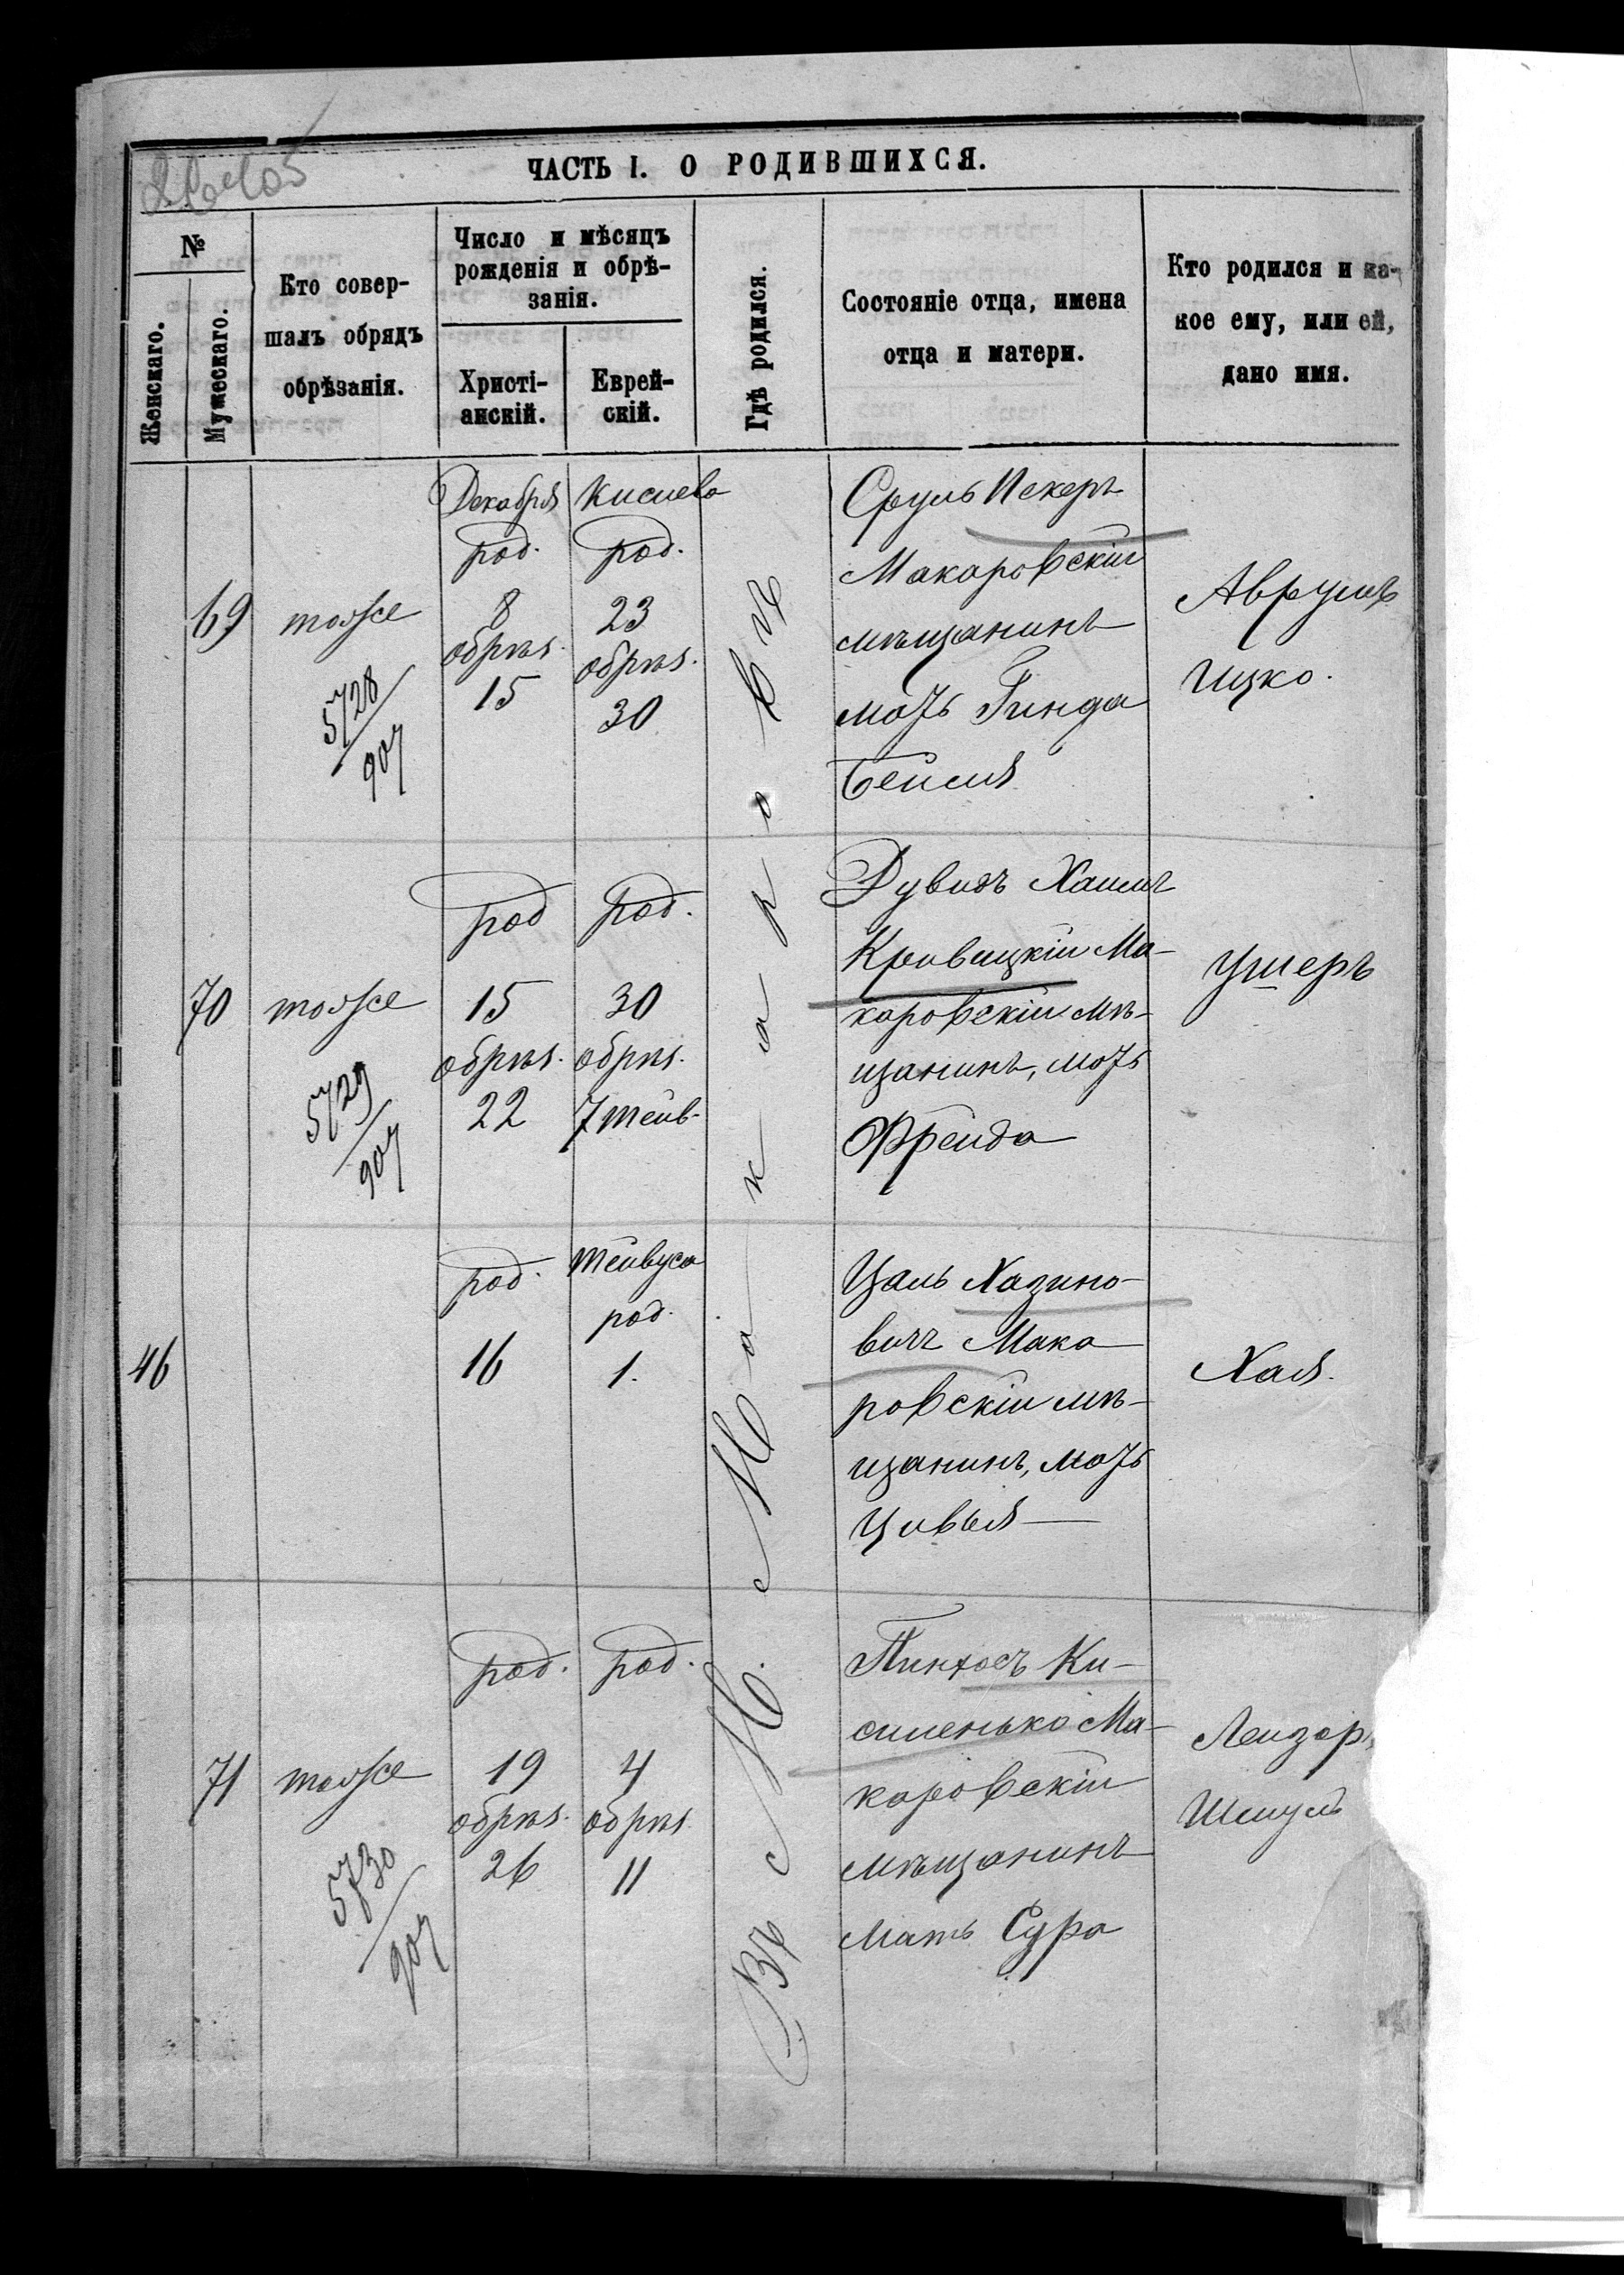 ЧАСТЬ I. О РОДИВШИХСЯ.
№
Женскаго.
Мужескаго.
Кто совер-
шалъ обрядъ
обрѣзанія.
Число и мѣсяцъ
рожденія и обрѣ-
занія.
Христі-
анскій.
Еврей-
скій.
Гдѣ родился.
Состояніе отца, имена
отца и матери.
Кто родился и ка-
кое ему, или ей,
дано имя.
Въ М. Макаровѣ
69
тоже
5728/907
Декабря
род.
8
обрѣз.
15
Кислева
род.
23
обрѣз.
30
Сруль Пекеръ
Макаровскій
мѣщанинъ
мать Гинда
Бейля
Аврумъ
Ицко.
70
тоже
5729/907
род
15
обрѣз.
22
род.
30
обрѣз.
7 Тейв.
Дувидъ Хаимъ
Кривицкій Ма-
каровскій мѣ-
щанинъ, мать
Фрейда
Ушеръ
46
род.
16
Тейвуса
род.
1.
Цаль Хазино-
вичъ Мака
ровскій мѣ-
щанинъ, мать
Цивья
Хая.
71
тоже
5730/907
род.
19
обрѣз.
26
род.
4
обрѣз.
11
Пинхосъ Ки-
силенько Ма-
каровскій
мѣщанинъ
мать Сура
Лейзор
Шмуль